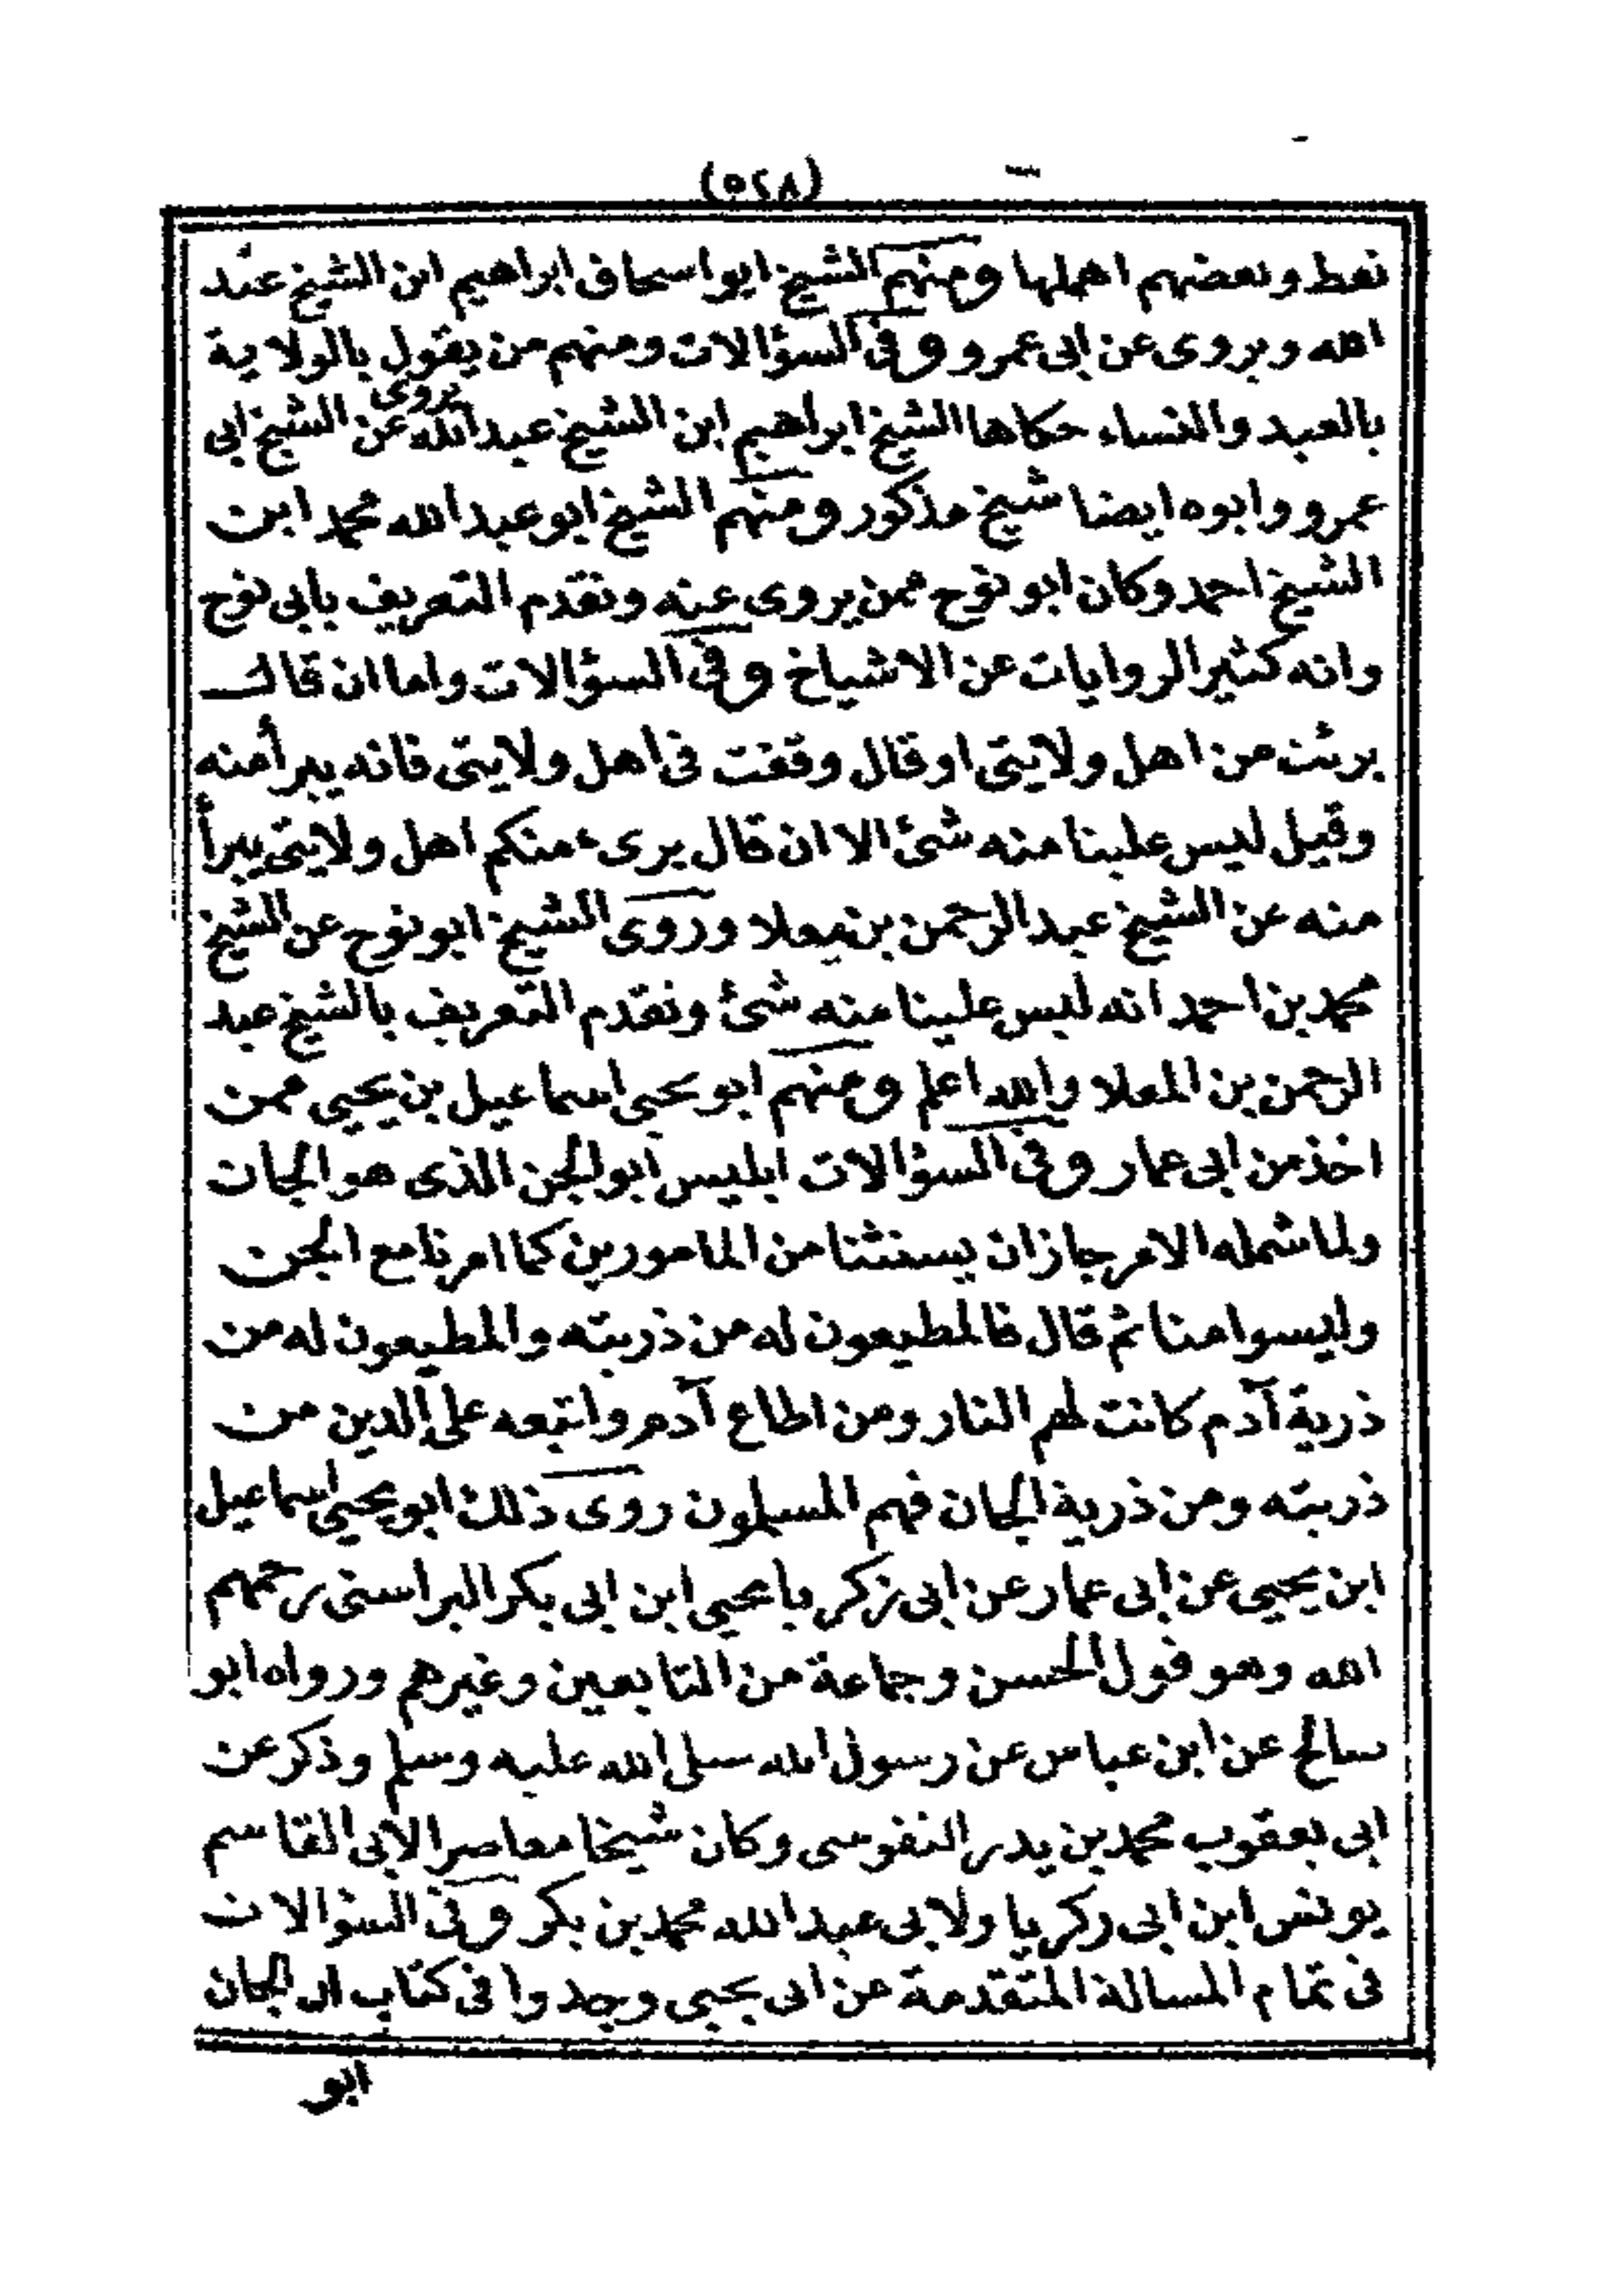 (٥٢٨)
نقط وبعضهم اهملها ومنهم الشيخ ابو اسحاق ابراهيم ابن الشيخ عبد
الله ويروى عن ابى عمرو وفى السؤالات ومنهم من يقول بالولاية
بالعبد والنساء حكاها الشيخ ابراهيم ابن الشيخ عبد الله يروى عن الشيخ ابى
عمرو وابوه ايضا شيخ مذكور ومنهم الشيخ ابو عبد الله محمد ابن
الشيخ احمد وكان ابو نوح ممن يروى عنه وتقدم التعريف بابى نوح
وانه كثير الروايات عن الاشياخ وفى السؤالات واما ان قال
برئت من اهل ولايتى او قال وقفت فى اهل ولايتى فانه يبرأ منه
وقيل ليس علينا منه شئ الا ان قال برىء منكم اهل ولايتى يبرأ
منه عن الشيخ عبد الرحمن بن معلا وروى الشيخ ابو نوح عن الشيخ
محمد بن احمد انه ليس علينا منه شئ وتقدم التعريف بالشيخ عبد
الرحمن بن المعلا والله اعلم ومنهم ابو يحيى اسماعيل بن يحيى ممن
اخذ من ابى عمار وفى السؤالات ابليس ابو الجن الذى هو الجان
ولما شمله الامر جاز ان يستثنا من المامورين كما امرنا مع الجن
وليسوا منا ثم قال فالمطيعون له من ذريته والمطيعون له من
ذرية آدم كانت لهم النار ومن اطاع آدم واتبعه على الدين من
ذريته ومن ذرية الجان فهم المسلمون روى ذلك ابو يحيى اسماعيل
ابن يحيى عن ابى عمار عن ابى زكريا يحيى ابن ابى بكر البراسنى رحمهم
الله وهو قول الحسن وجماعة من التابعين وغيرهم ورواه ابو
صالح عن ابن عباس عن رسول الله صلى الله عليه وسلم وذكر عن
ابى يعقوب محمد بن يدر النفوسى وكان شيخا معاصرا لابى القاسم
يونس ابن ابى زكريا ولابى عبد الله محمد بن بكر وفى السؤالات
فى تمام المسالة المتقدمة عن ابى يحيى وجدوا فى كتاب ان الجان
ابو